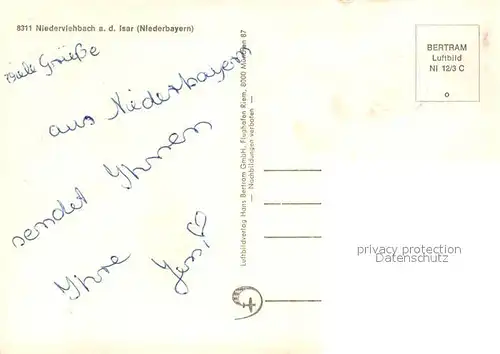 8311 Niederviehbach a. d. Isar (Niederbayern)
viele Grüße
aus Niederbayern
sendet Ihnen
Ihre
Jessi
Luftbildverlag Hans Bertram GmbH, Flughafen Riem, 8000 München 87
— Nachbildungen verboten —
BERTRAM
Luftbild
NI 12/3 C
privacy protection
AnsichtskartenCenter